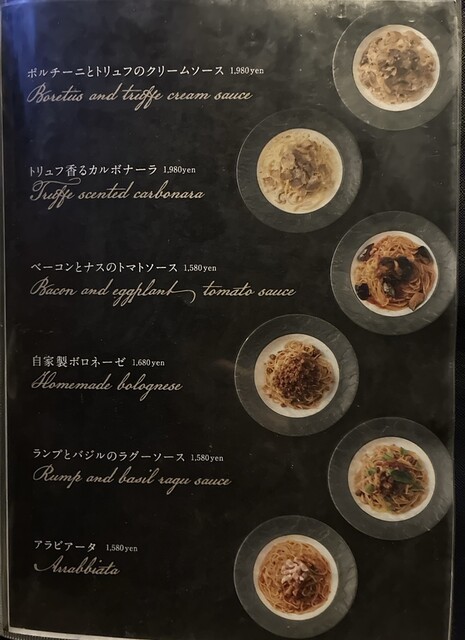 ポルチーニとトリュフのクリームソース 1,980yen
Boretus and truffe cream sauce
トリュフ香るカルボナーラ 1,980yen
Truffe scented carbonara
ベーコンとナスのトマトソース 1,580yen
Bacon and eggplant tomato sauce
自家製ボロネーゼ 1,680yen
Homemade bolognese
ランプとバジルのラグーソース 1,580yen
Rump and basil ragu sauce
アラビアータ 1,580yen
Arrabbiata